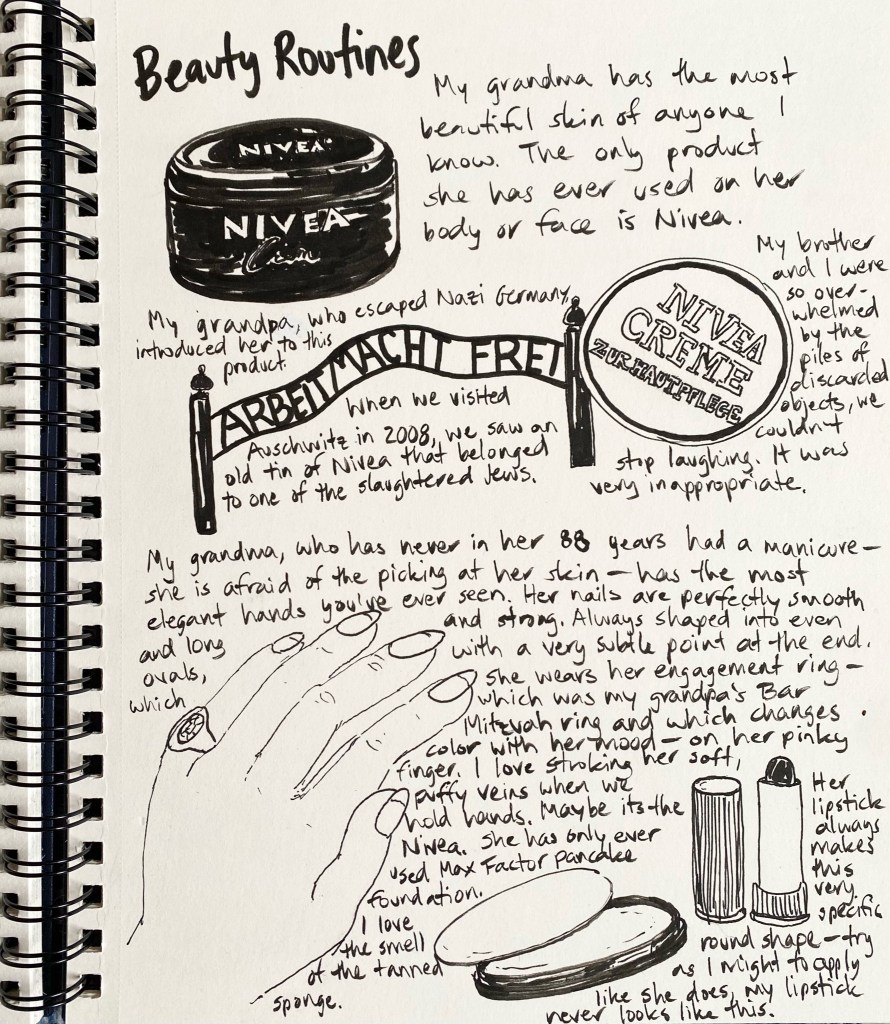 Beauty Routines
My grandma has the most
beautiful skin of anyone I
know. The only product
she has ever used on her
body or face is Nivea.
NIVEA
NIVEA
Creme
My grandpa, who escaped Nazi Germany,
introduced her to this
product.
ARBEIT MACHT FREI
When we visited
Auschwitz in 2008, we saw an
old tin of Nivea that belonged
to one of the slaughtered Jews.
NIVEA
CREME
ZUR HAUTPFLEGE
My brother
and I were
so over-
whelmed
by the
piles of
discarded
objects, we
couldn't
stop laughing. It was
very inappropriate.
My grandma, who has never in her 88 years had a manicure—
she is afraid of the picking at her skin—has the most
elegant hands you've ever seen. Her nails are perfectly smooth
and strong. Always shaped into even
and long
with a very subtle point at the end.
ovals,
She wears her engagement ring—
which
which was my grandpa's Bar
Mitzvah ring and which changes
color with her mood—on her pinky
finger. I love stroking her soft,
puffy veins when we
hold hands. Maybe its the
Nivea. She has only ever
used Max Factor pancake
foundation.
I love
the smell
of the tanned
sponge.
Her
lipstick
always
makes
this
very
specific
round shape—try
as I might to apply
like she does, my lipstick
never looks like this.